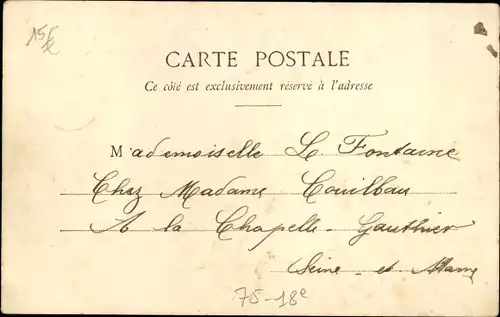 15€
CARTE POSTALE
Ce côté est exclusivement réservé à l'adresse
Mademoiselle L. Fontaine
Chez Madame Couilbau
A la Chapelle-Gauthier
Seine-et-Marne
75-18e